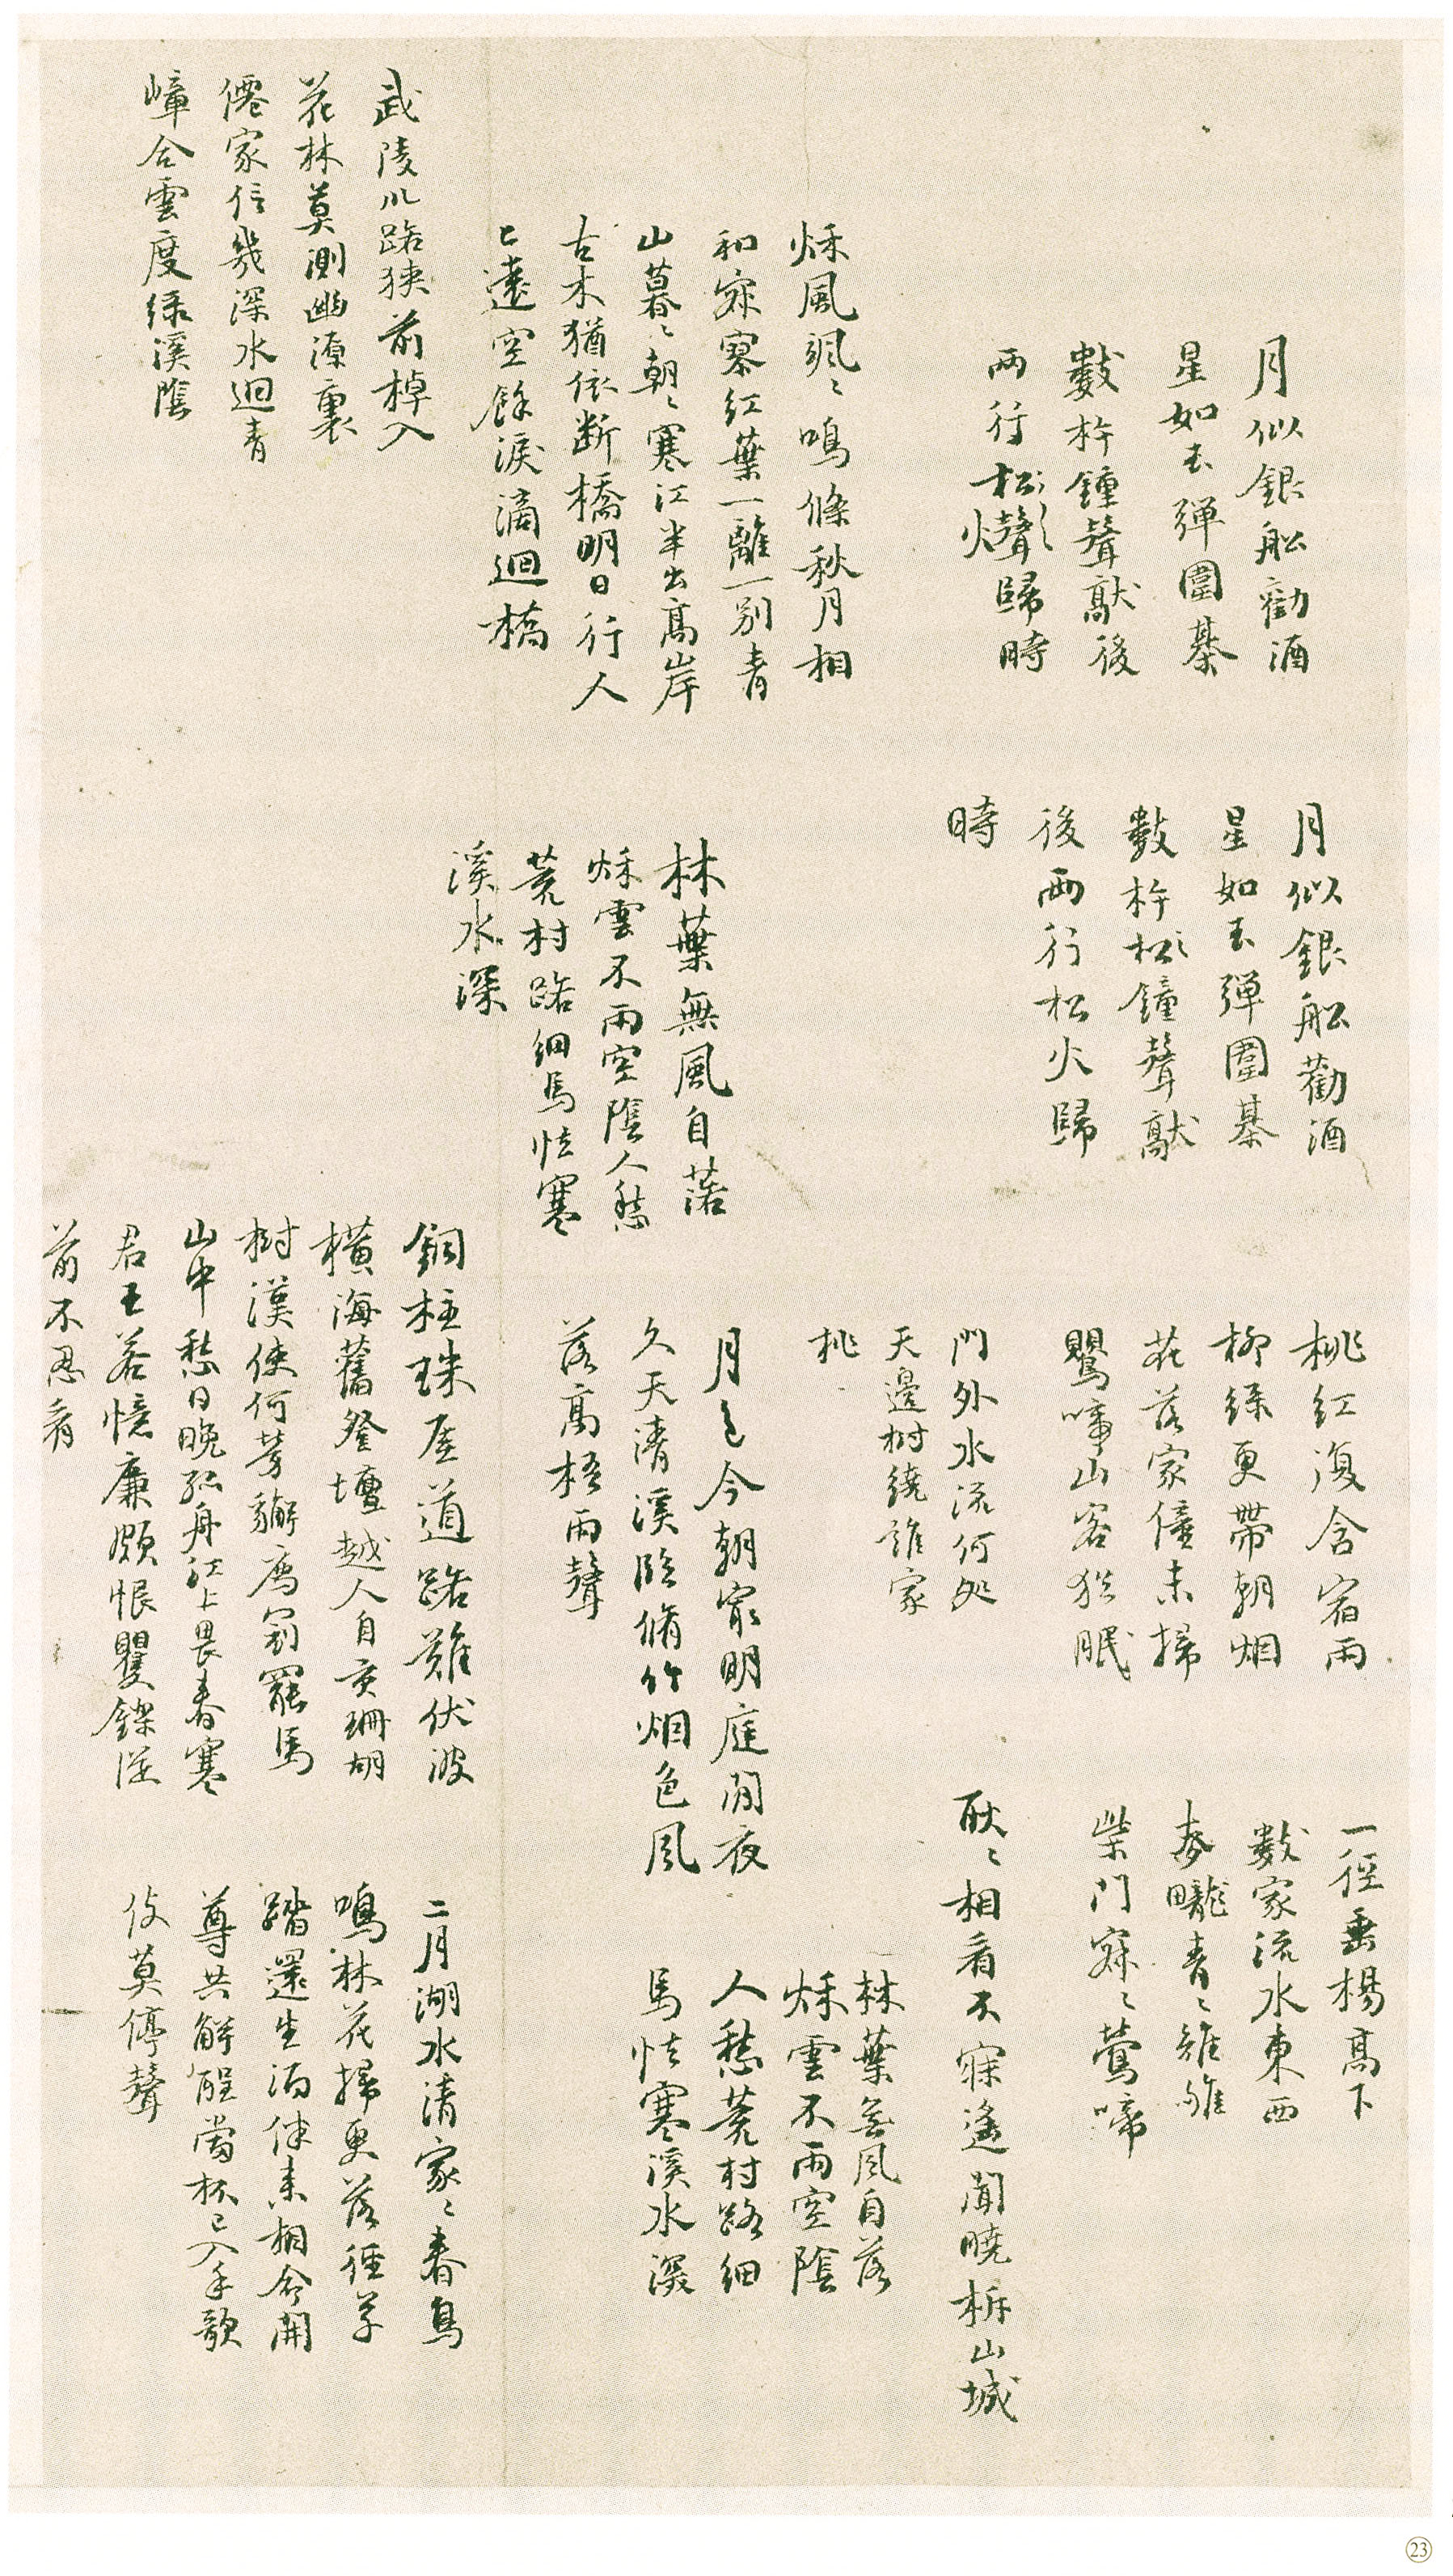 月似銀船勸酒
星如玉彈圍棊
數杵鍾聲獻後
兩行松聲歸時
月似銀船勸酒
星如玉彈圍棊
數杵鐘聲獻
後兩行松火歸
時
桃紅復含宿雨
柳綠更帶朝烟
花落家僮未掃
鸎啼山客猶眠
一徑垂楊高下
數家流水東西
麥隴青〻雉雊
柴門寂〻鶯啼
門外水流何処
天邊樹繞誰家
桃
耿〻相看不寐遙聞曉柝山城
秌風颯〻鳴條秋月相
和寂寥紅葉一離一別青
山暮〻朝〻寒江半出高岸
古木猶依断橋明日行人
已遠空餘淚滴迴橋
林葉無風自落
秌雲不雨空陰人愁
荒村路細馬怯寒
溪水深
月色今朝㝡明庭閒夜
久天清溪臨脩竹烟色風
落高梧雨聲
林葉無風自落
秌雲不雨空陰
人愁荒村路細
馬怯寒溪水深
武陵川路狹前棹入
花林莫測幽源裏
僊家信幾深水迴青
嶂合雲度綠溪陰
銅柱珠崖道路難伏波
橫海舊登壇越人自貢珊胡
樹漢使何勞獬廌冠罷馬
山中愁日晚孤舟江上畏春寒
君王若憶廉頗恨矍鑠從
前不忍看
二月湖水清家〻春鳥
鳴林花掃更落徑草
踏還生酒伴来相命開
尊共解酲當杯已入手歌
伎莫停聲
23